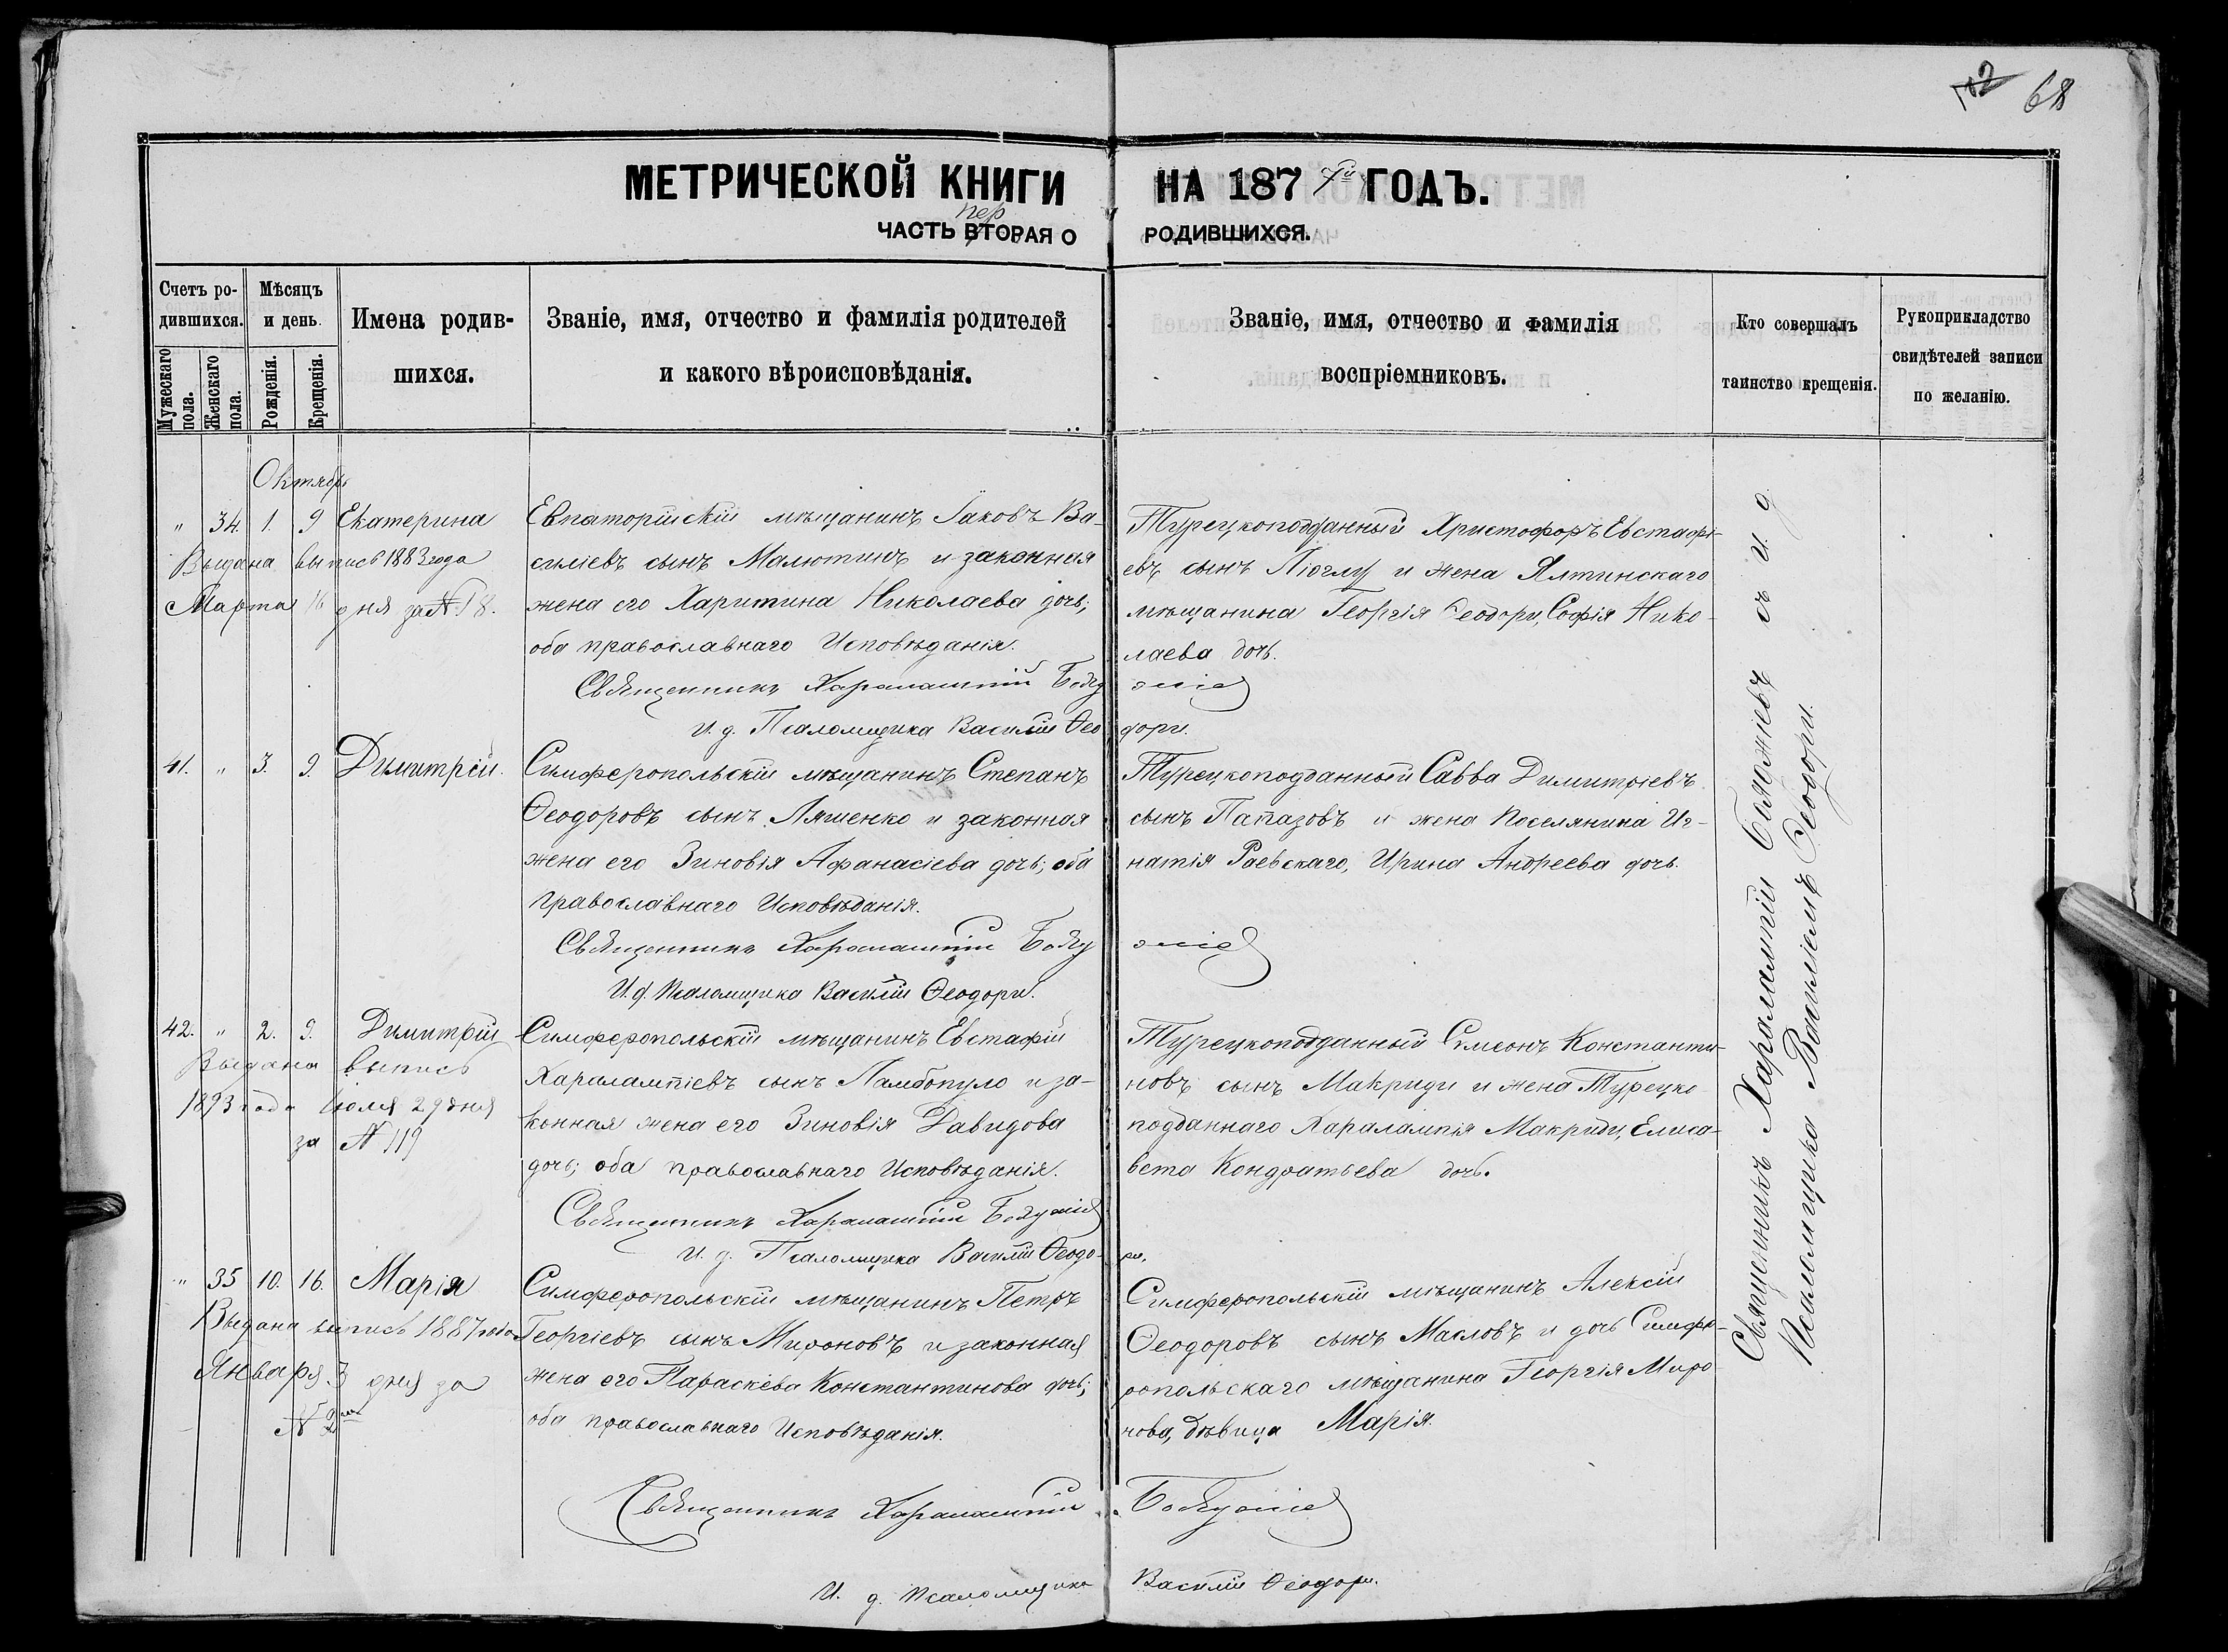 102 68
МЕТРИЧЕСКОЙ КНИГИ НА 187 7й ГОДЪ.
пер
ЧАСТЬ ВТОРАЯ О РОДИВШИХСЯ.
Счетъ ро-
дившихся.
Мужескаго пола.
Женскаго пола.
Мѣсяцъ
и день.
Рожденія.
Крещенія.
Имена родив-
шихся.
Званіе, имя, отчество и фамилія родителей
и какого вѣроисповѣданія.
Званіе, имя, отчество и фамилія
воспріемниковъ.
Кто совершалъ
таинство крещенія.
Рукоприкладство
свидѣтелей записи
по желанію.
Октябрь
" 34. 1. 9 Екатерина
Выдана выпись 1883 года
Марта 16 дня за № 18.
Евпаторійскій мѣщанинъ Іаковъ Ва-
силіевъ сынъ Малютинъ и законная
жена его Харитина Николаева дочь;
оба православнаго Исповѣданія.
Турецкоподданный Христофоръ Евстафі-
евъ сынъ Піоглу и жена Ялтинскаго
мѣщанина Георгія Ѳеодори, Софія Нико-
лаева дочь.
Священникъ Харалампій
И. д. Псаломщика Василій Ѳеодори.
41. " 3. 9. Димитрій.
Симферопольскій мѣщанинъ Степанъ
Ѳеодоровъ сынъ Ляшенко и законная
жена его Зиновія Афанасіева дочь; оба
православнаго Исповѣданія.
Турецкоподданный Савва Димитріевъ
сынъ Папазовъ и жена поселянина Иг-
натія Раевскаго, Ирина Андреева дочь.
Священникъ Харалампій
И. д. Псаломщика Василій Ѳеодори.
42. " 2. 9. Димитрій
Выдана выпись
1893 года Іюля 29 дня
за № 119
Симферопольскій мѣщанинъ Евстафій
Харалампіевъ сынъ Памбопуло и за-
конная жена его Зиновія Давидова
дочь; оба православнаго Исповѣданія.
Турецкоподданный Симеонъ Константи-
новъ сынъ Макриди и жена Турецко-
подданнаго Харалампія Макриди, Елиса-
вета Кондратьева дочь.
Священникъ Харалампій
И. д. Псаломщика Василій Ѳеодори.
" 35 10. 16. Марія
Выдана выпись 1887 года
Января 3 дня за
№ 2
Симферопольскій мѣщанинъ Петръ
Георгіевъ сынъ Мироновъ и законная
жена его Параскева Константинова дочь;
оба православнаго Исповѣданія.
Симферопольскій мѣщанинъ Алексій
Ѳеодоровъ сынъ Масловъ и дочь Симфе-
ропольскаго мѣщанина Георгія Миро-
нова, дѣвица Марія.
Священникъ Харалампій
И. д. Псаломщика Василій Ѳеодори.
Священникъ Харалампій Бояджіевъ съ и. д.
Псаломщика Василіемъ Ѳеодори.